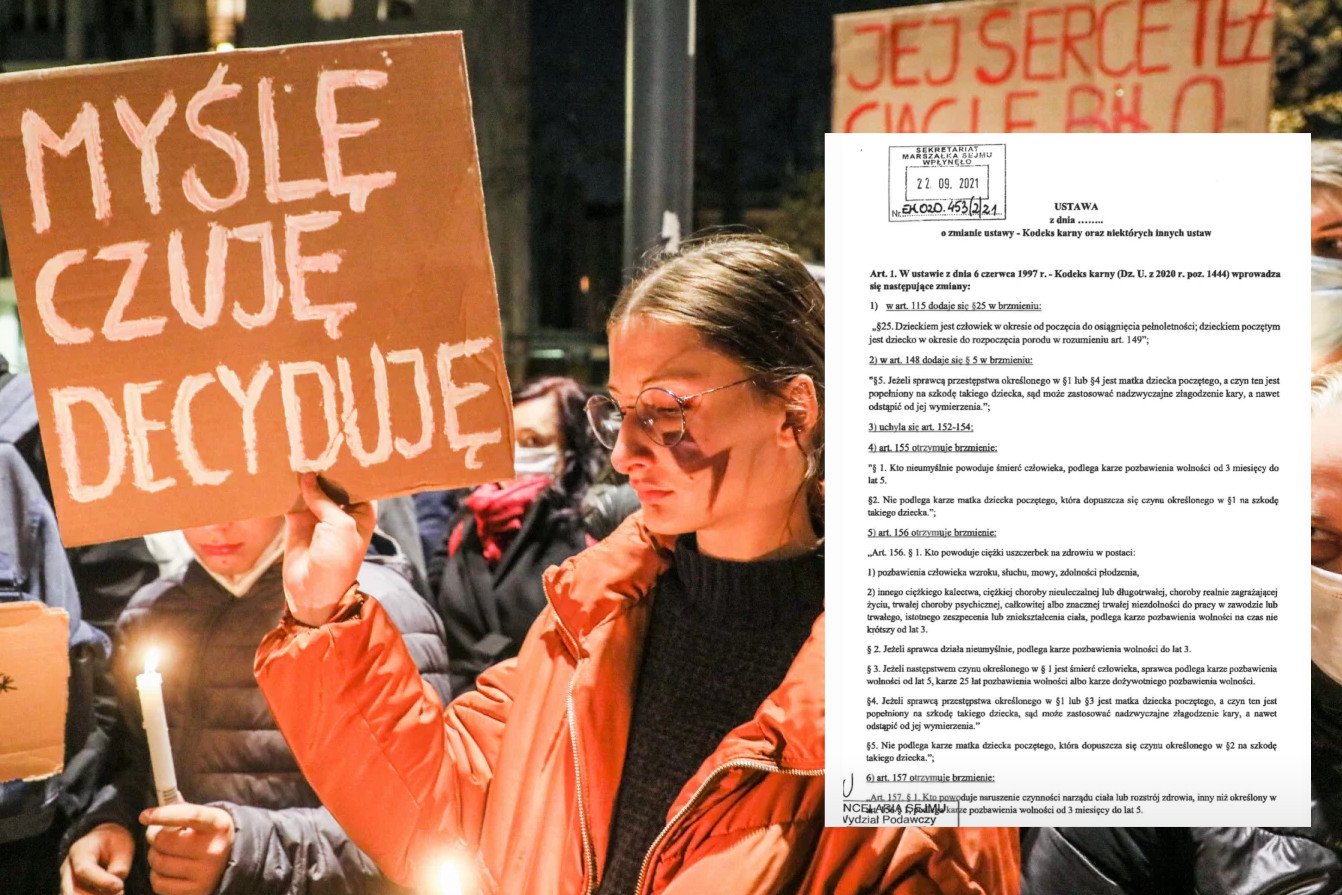 MYŚLĘ
CZUJĘ
DECYDUJĘ
JEJ SERCE TEŻ
CIĄGLE BIŁO
SEKRETARIAT
MARSZAŁKA SEJMU
WPŁYNĘŁO
22. 09. 2021
Nr. EK.020.453(2)21
USTAWA
z dnia ........
o zmianie ustawy - Kodeks karny oraz niektórych innych ustaw
Art. 1. W ustawie z dnia 6 czerwca 1997 r. - Kodeks karny (Dz. U. z 2020 r. poz. 1444) wprowadza
się następujące zmiany:
1) w art. 115 dodaje się §25 w brzmieniu:
„§25. Dzieckiem jest człowiek w okresie od poczęcia do osiągnięcia pełnoletności; dzieckiem poczętym
jest dziecko w okresie do rozpoczęcia porodu w rozumieniu art. 149";
2) w art. 148 dodaje się § 5 w brzmieniu:
"§5. Jeżeli sprawcą przestępstwa określonego w §1 lub §4 jest matka dziecka poczętego, a czyn ten jest
popełniony na szkodę takiego dziecka, sąd może zastosować nadzwyczajne złagodzenie kary, a nawet
odstąpić od jej wymierzenia.";
3) uchyla się art. 152-154;
4) art. 155 otrzymuje brzmienie:
"§ 1. Kto nieumyślnie powoduje śmierć człowieka, podlega karze pozbawienia wolności od 3 miesięcy do
lat 5.
§2. Nie podlega karze matka dziecka poczętego, która dopuszcza się czynu określonego w §1 na szkodę
takiego dziecka.";
5) art. 156 otrzymuje brzmienie:
„Art. 156. § 1. Kto powoduje ciężki uszczerbek na zdrowiu w postaci:
1) pozbawienia człowieka wzroku, słuchu, mowy, zdolności płodzenia,
2) innego ciężkiego kalectwa, ciężkiej choroby nieuleczalnej lub długotrwałej, choroby realnie zagrażającej
życiu, trwałej choroby psychicznej, całkowitej albo znacznej trwałej niezdolności do pracy w zawodzie lub
trwałego, istotnego zeszpecenia lub zniekształcenia ciała, podlega karze pozbawienia wolności na czas nie
krótszy od lat 3.
§ 2. Jeżeli sprawca działa nieumyślnie, podlega karze pozbawienia wolności do lat 3.
§ 3. Jeżeli następstwem czynu określonego w § 1 jest śmierć człowieka, sprawca podlega karze pozbawienia
wolności od lat 5, karze 25 lat pozbawienia wolności albo karze dożywotniego pozbawienia wolności.
§4. Jeżeli sprawcą przestępstwa określonego w §1 lub §3 jest matka dziecka poczętego, a czyn ten jest
popełniony na szkodę takiego dziecka, sąd może zastosować nadzwyczajne złagodzenie kary, a nawet
odstąpić od jej wymierzenia."
§5. Nie podlega karze matka dziecka poczętego, która dopuszcza się czynu określonego w §2 na szkodę
takiego dziecka.";
6) art. 157 otrzymuje brzmienie:
„Art. 157. § 1. Kto powoduje naruszenie czynności narządu ciała lub rozstrój zdrowia, inny niż określony w
art. 156 § 1, podlega karze pozbawienia wolności od 3 miesięcy do lat 5.
NCELARIA SEJMU
Wydział Podawczy